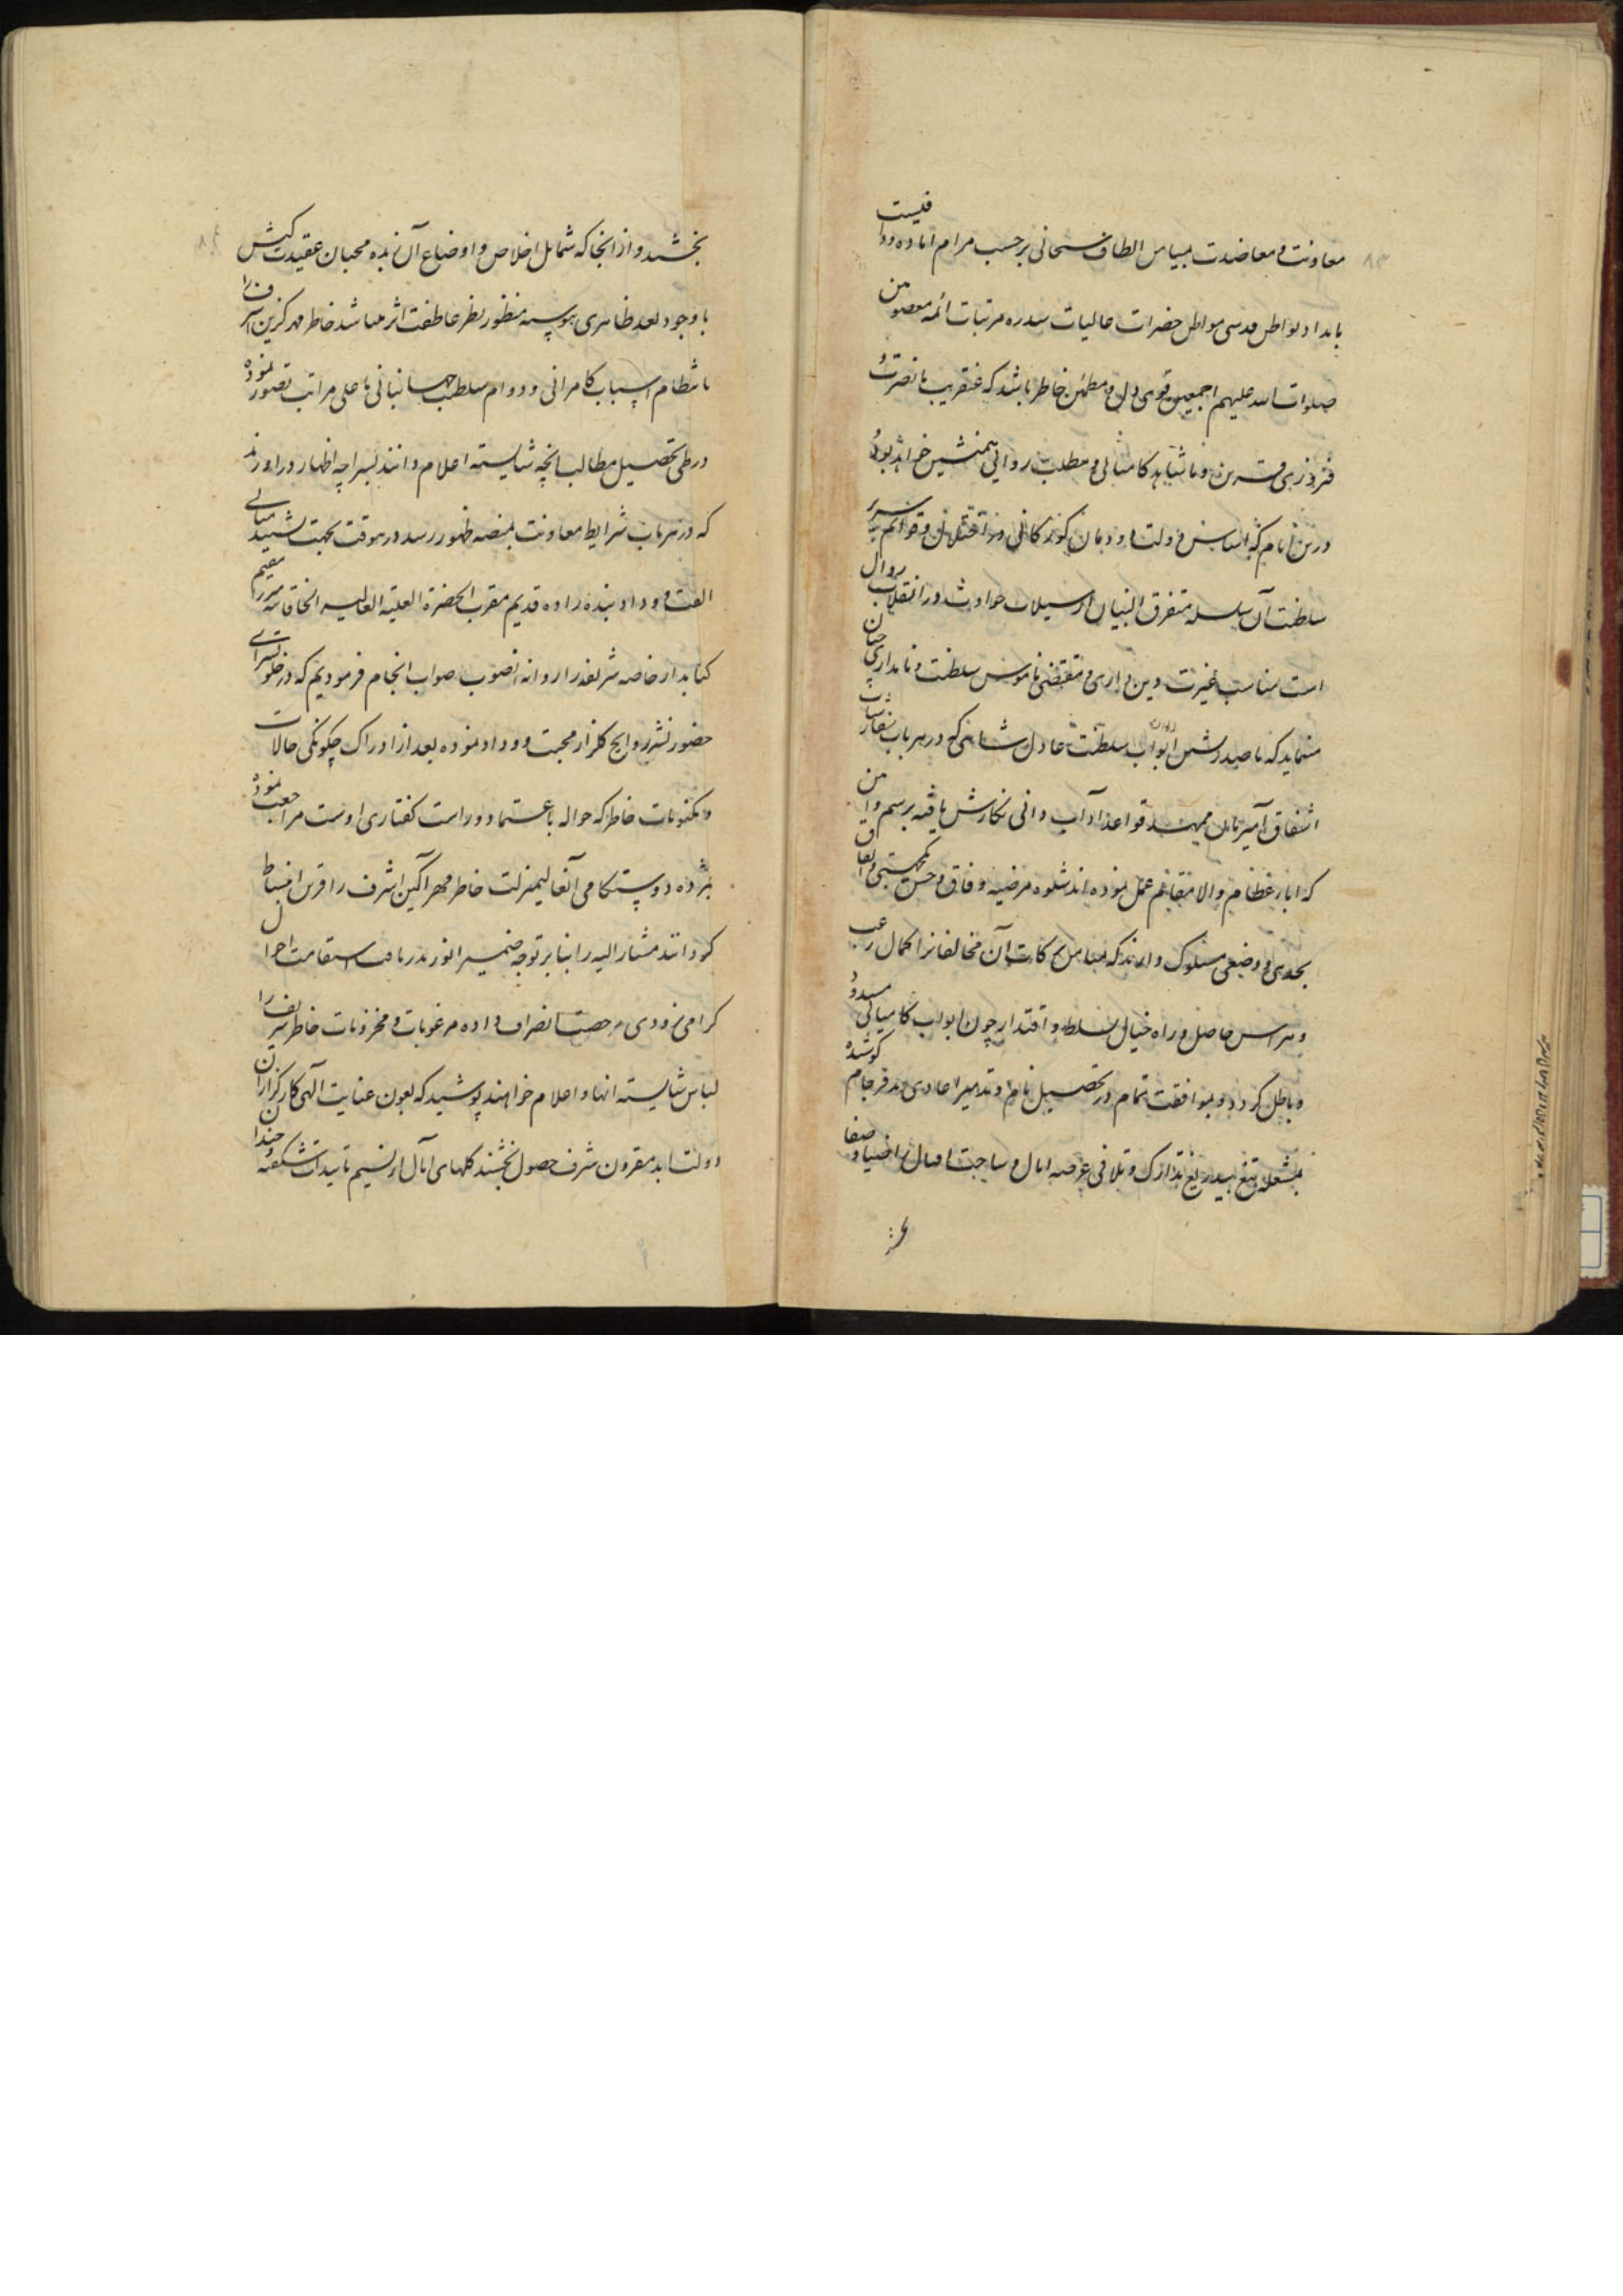 معاونت و معاضدت بمیامن الطاف سبحانی برحسب مرام آماده و واقیست
بامداد بواطن قدسی مواطن حضرات عالیات سدره مرتبات ائمه معصومین
صلوات الله علیهم اجمعین قوی دل و مطمئن خاطر باشد که عنقریب با نصرت و
فیروزی قرین و با شاهد کامیابی و مطلب روائی همنشین خواهد بود
درین ایام که اساس دولت دودمان گورکانی در اختلال و قوائم سریر
سلطنت آن سلسله متفرق البنیان از سیلاب حوادث در انقلاب
است مناسب غیرت دین داری و مقتضی ناموس سلطنت و نامداری چنان
مینماید که ابواب سلطنت عادل شاهی که در هر باب
اشفاق آمیز قواعد آداب دانی نگارش یافته برسم و
که آباء عظام والا مقام عمل نموده‌اند شیوه مرضیه وفاق و حسن یکجهتی و اتفاق
بحدی و وضعی مسلوک دارند که بمیامن برکات آن مخالفانرا کمال رعب
و هراس حاصل و راه خیال تسلط و اقتدار چون ابواب کامیابی مسدود
و باطل گردد و بموافقت تمام در تحصیل نام و تدمیر اعادی بدفرجام کوشیده
بمشعله تیغ بیدریغ تدارک و تلافی عرصه آمال و ساحت اقبال را ضیا و صفا
بخشند و از آنجا که شمایل اخلاص و اوضاع آن زبده محبان عقیدت کیش
با وجود بعد ظاهری پیوسته منظور نظر عاطفت اثر میباشد خاطر مهر گزین اشرف را
بانتظام اسباب کامرانی و دوام سلطنت جهانبانی باعلی مراتب تصور نموده
در طی تحصیل مطالب آنچه شایسته اعلام دانند بسراچه اظهار درآورند
که در هر باب شرایط معاونت بمنصه ظهور رسد درینوقت بجهت تشیید مبانی
الفت و وداد بنده زاده قدیم مقرب الحضرة العلیة العالیه الخاقانیه میرزا مقیم
کتابدار خاصه شریفه را روانه آنصوب صواب انجام فرمودیم که در خلوتسرای
حضور نشر روایح گلزار محبت و وداد نموده بعد از ادراک چگونگی حالات
و مکنونات خاطر که حواله باعتماد و راست گفتاری اوست مراجعت نموده
بمژده دوستکامی آنعالیمنزلت خاطر مهر آگین اشرف را قرین انبساط
گردانند مشار الیه را بنابر توجه ضمیر انور بدریافت استقامت احوال
گرامی بزودی رخصت انصراف داده مرغوبات و مخزونات خاطر شریف را
لباس شایسته انها و اعلام خواهند پوشید که بعون عنایت آلهی کارگزاران
دولت ابد مقرون شرف حصول بخشند گلهای آمال از نسیم تأییدات شکفته